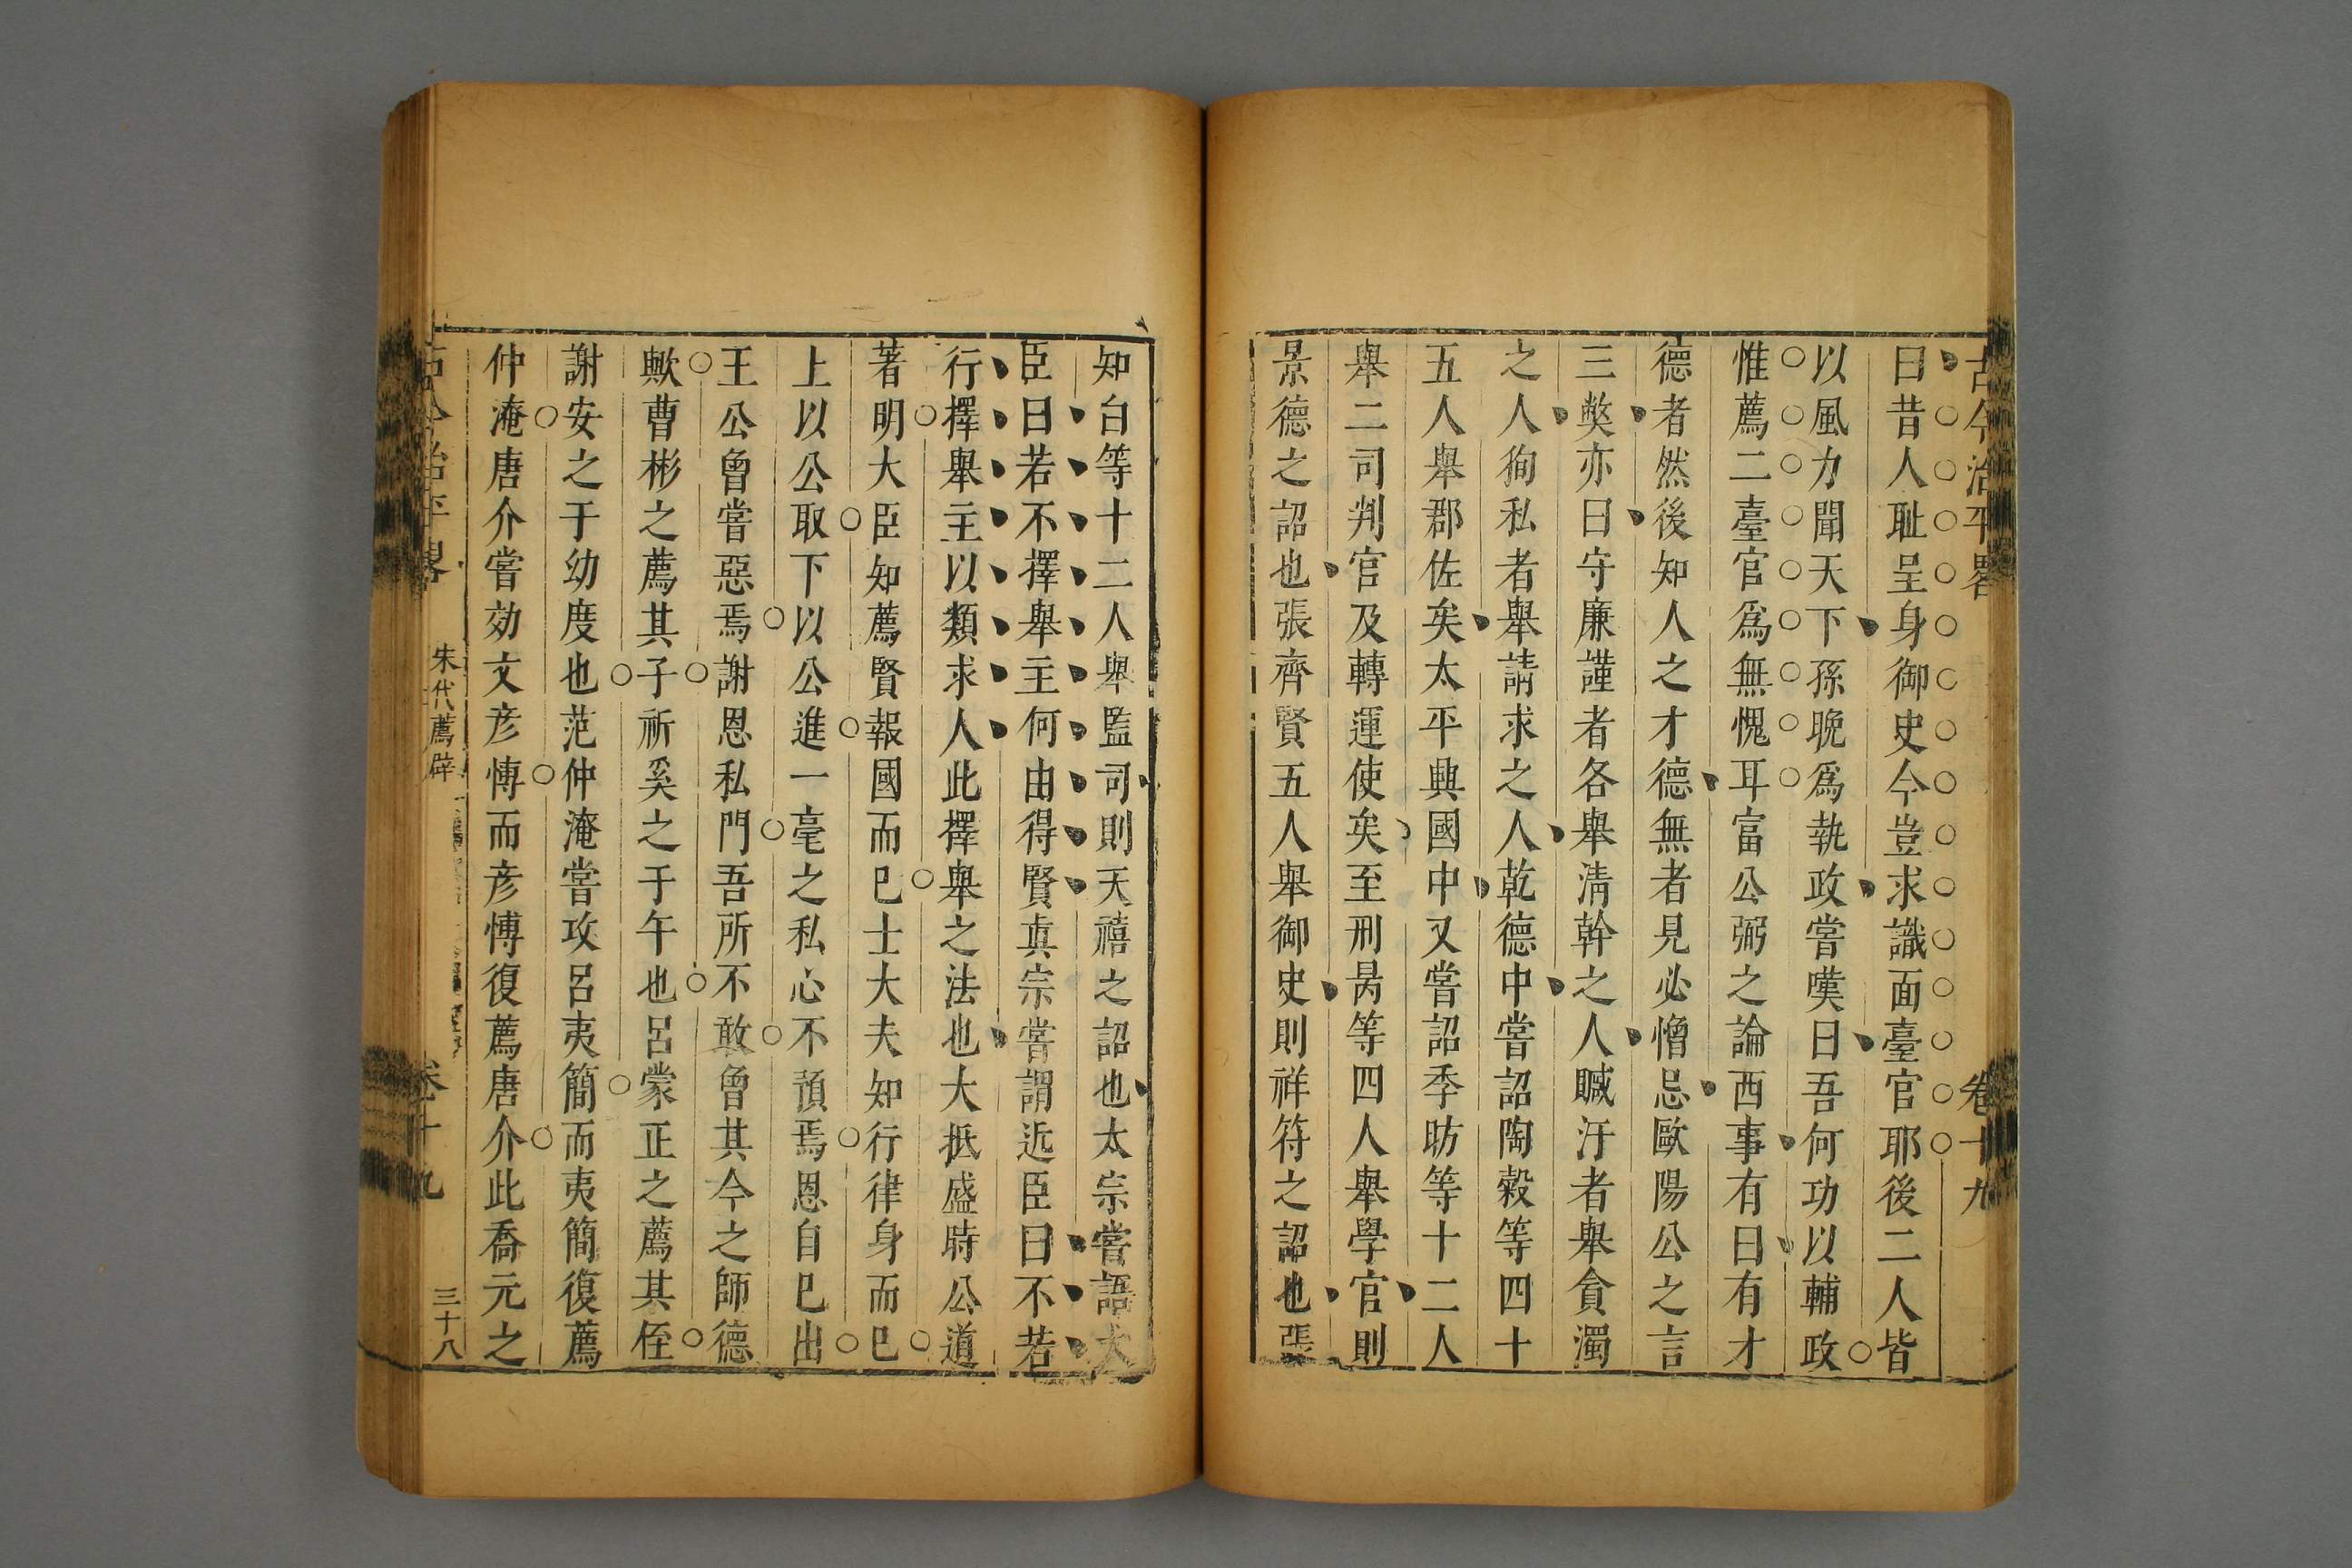 古今治平畧 卷十九
曰昔人耻呈身御史今豈求識面臺官耶後二人皆
以風力聞天下孫晚爲執政嘗嘆曰吾何功以輔政
惟薦二臺官爲無愧耳富公弼之論西事有曰有才
德者然後知人之才德無者見必憎忌歐陽公之言
三獘亦曰守廉謹者各舉清幹之人贓汙者舉貪濁
之人狥私者舉請求之人乾德中嘗詔陶榖等四十
五人舉郡佐矣太平興國中又嘗詔季昉等十二人
舉二司判官及轉運使矣至刑昺等四人舉學官則
景德之詔也張齊賢五人舉御史則祥符之詔也張
知白等十二人舉監司則天禧之詔也太宗嘗語大
臣曰若不擇舉主何由得賢眞宗嘗謂近臣曰不若
行擇舉主以類求人此擇舉之法也大抵盛時公道
著明大臣知薦賢報國而巳士大夫知行律身而巳
上以公取下以公進一毫之私心不預焉恩自巳出
王公曾嘗惡焉謝恩私門吾所不敢曾其今之師德
歟曹彬之薦其子祈奚之于午也呂蒙正之薦其侄
謝安之于幼度也范仲淹嘗攻呂夷簡而夷簡復薦
仲淹唐介嘗効文彦愽而彦愽復薦唐介此喬元之
古今治平畧 朱代薦辟 卷十九 三十八